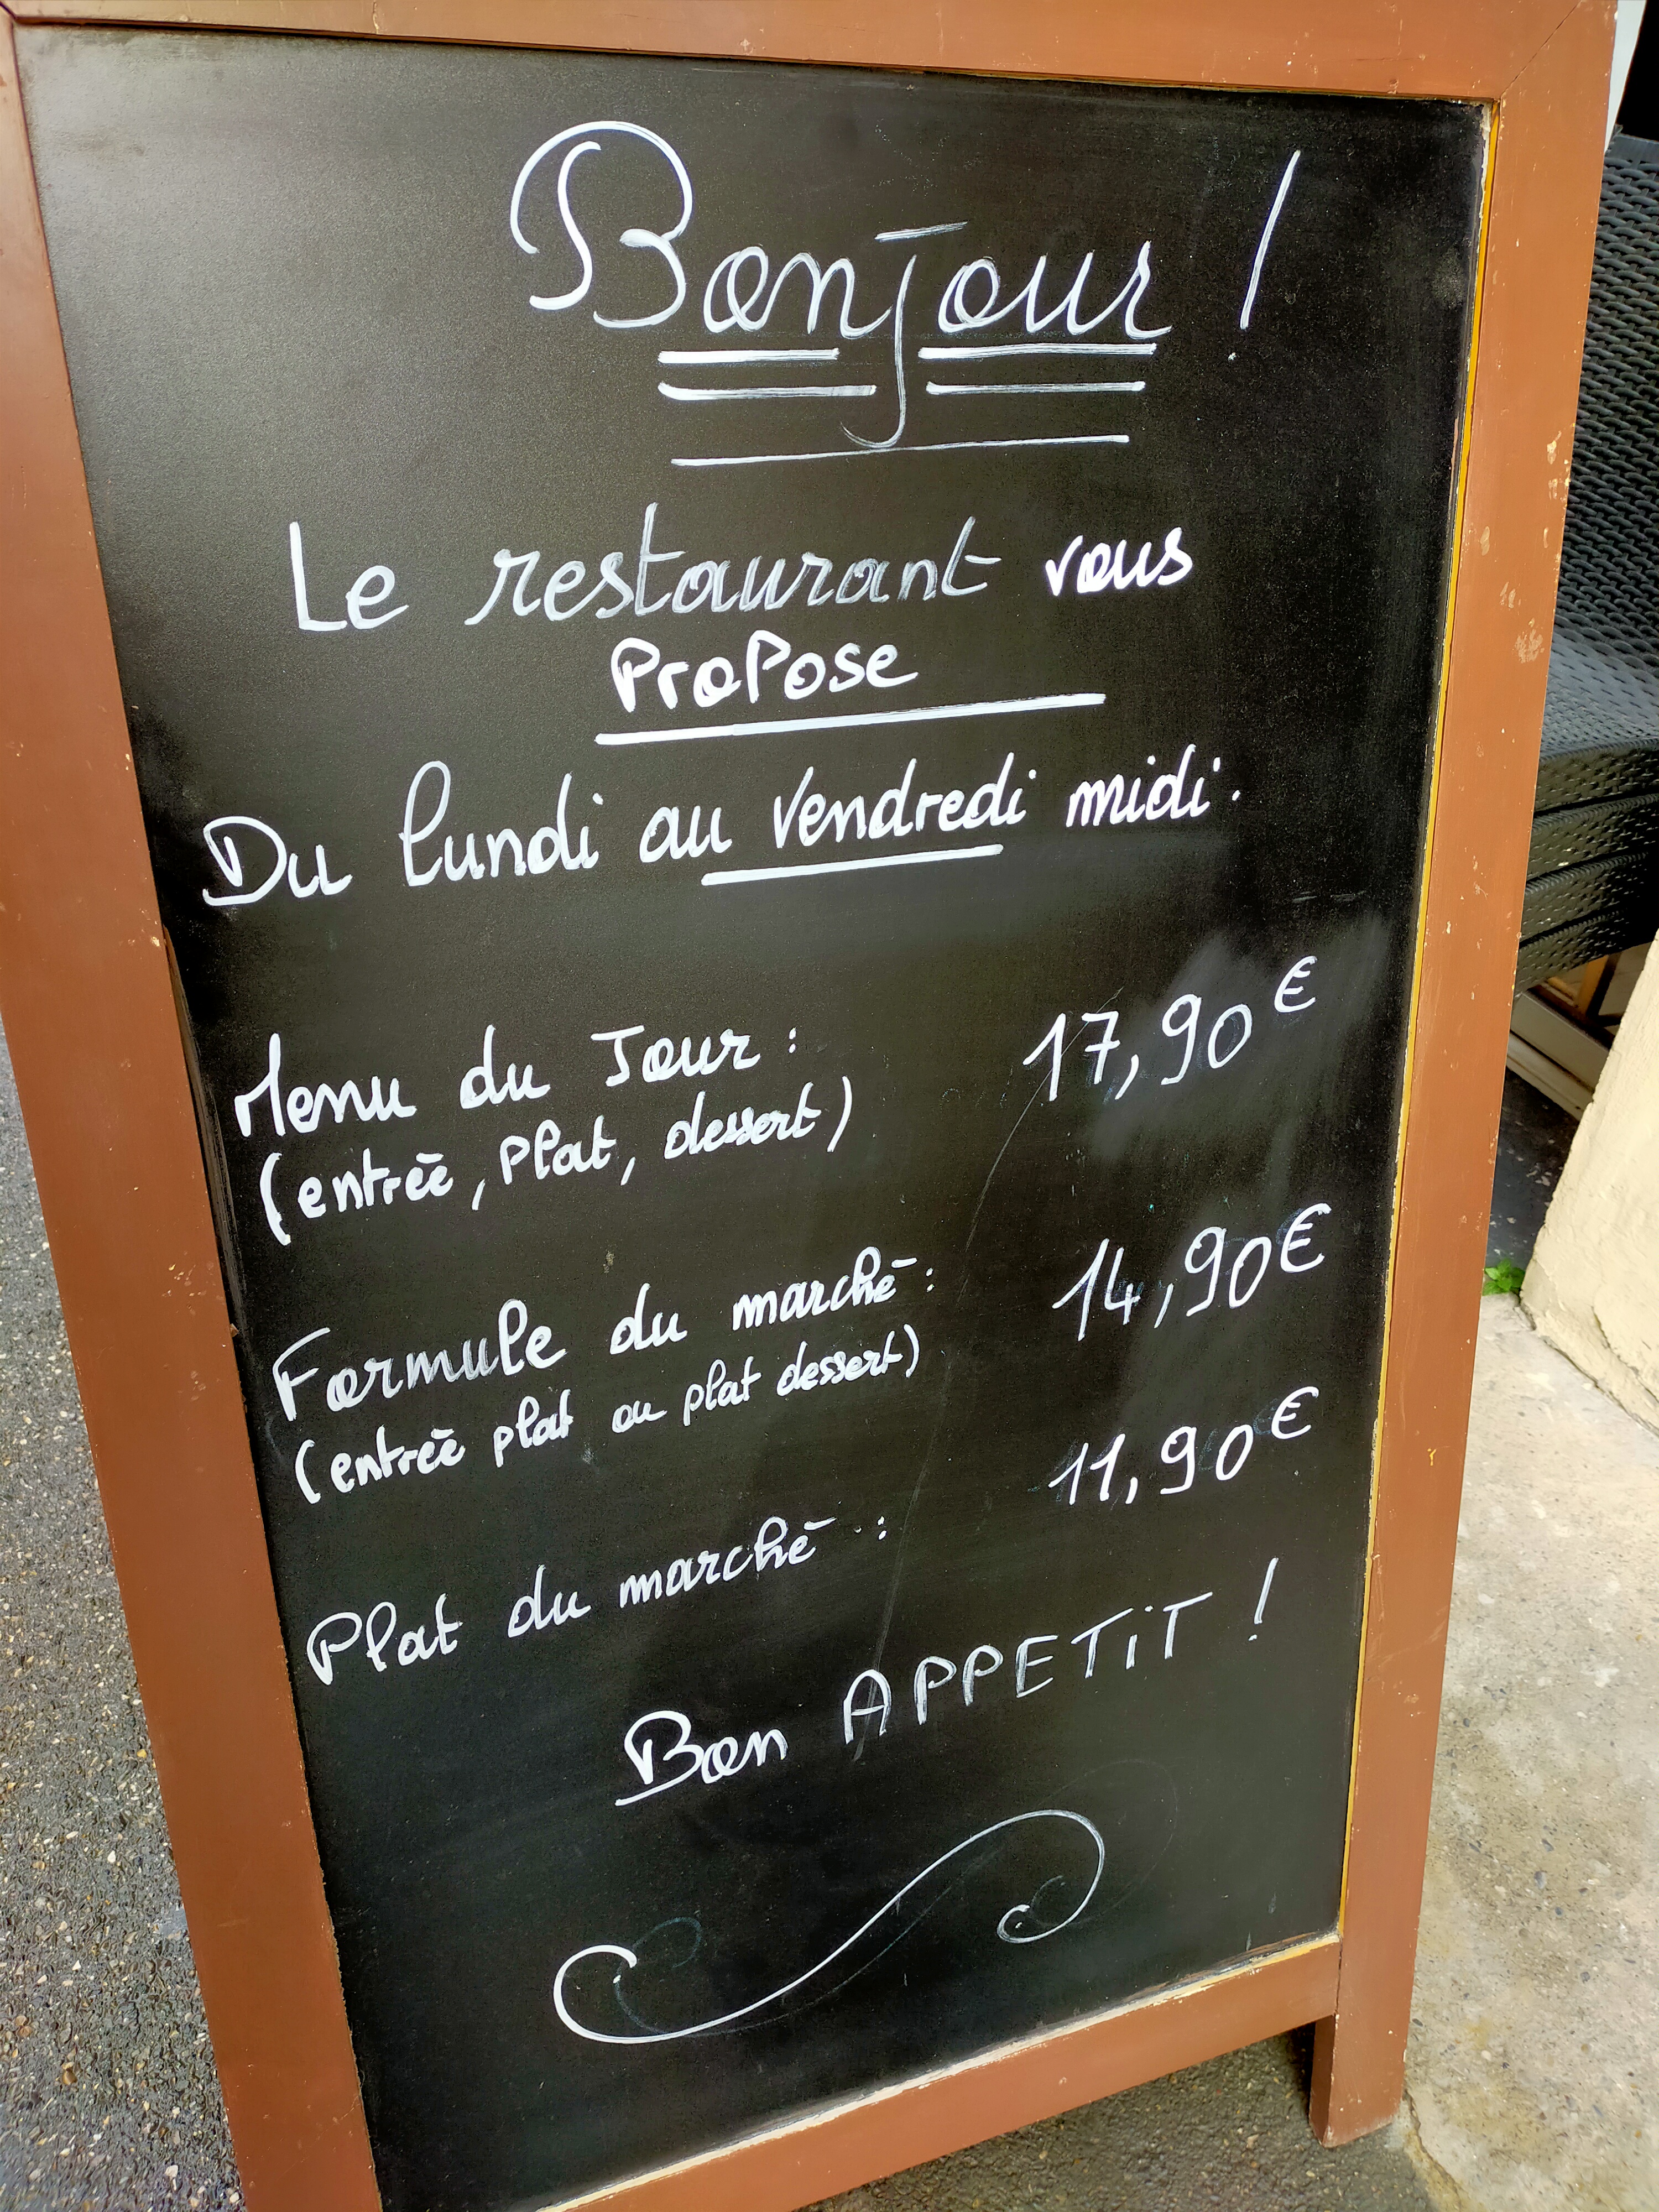 Bonjour !
Le restaurant vous
Propose
Du lundi au Vendredi midi.
Menu du Jour : 17,90€
(entrée, Plat, dessert)
Formule du marché : 14,90€
(entrée plat ou plat dessert)
Plat du marché : 11,90€
Bon APPETiT !